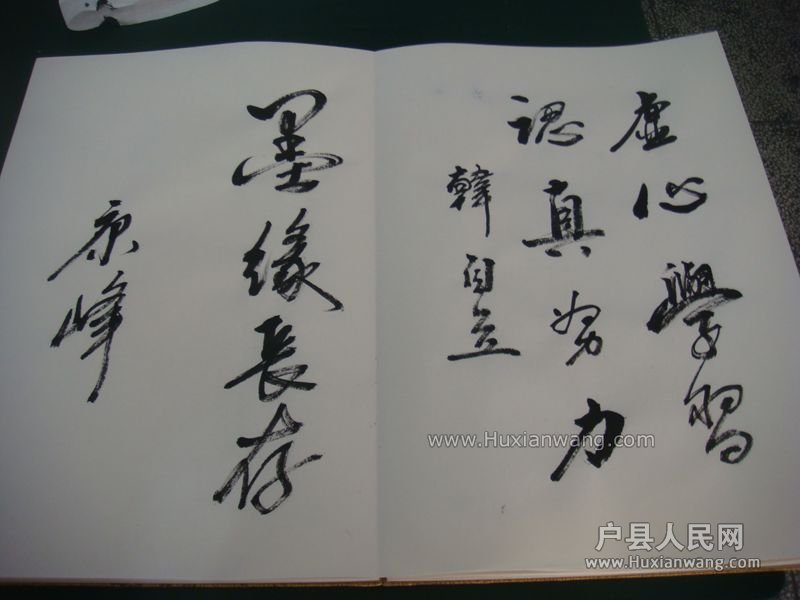 虚心學習
認真努力
韓自立
墨缘長存
康峰
www.Huxianwang.com
户县人民网
www.Huxianwang.com